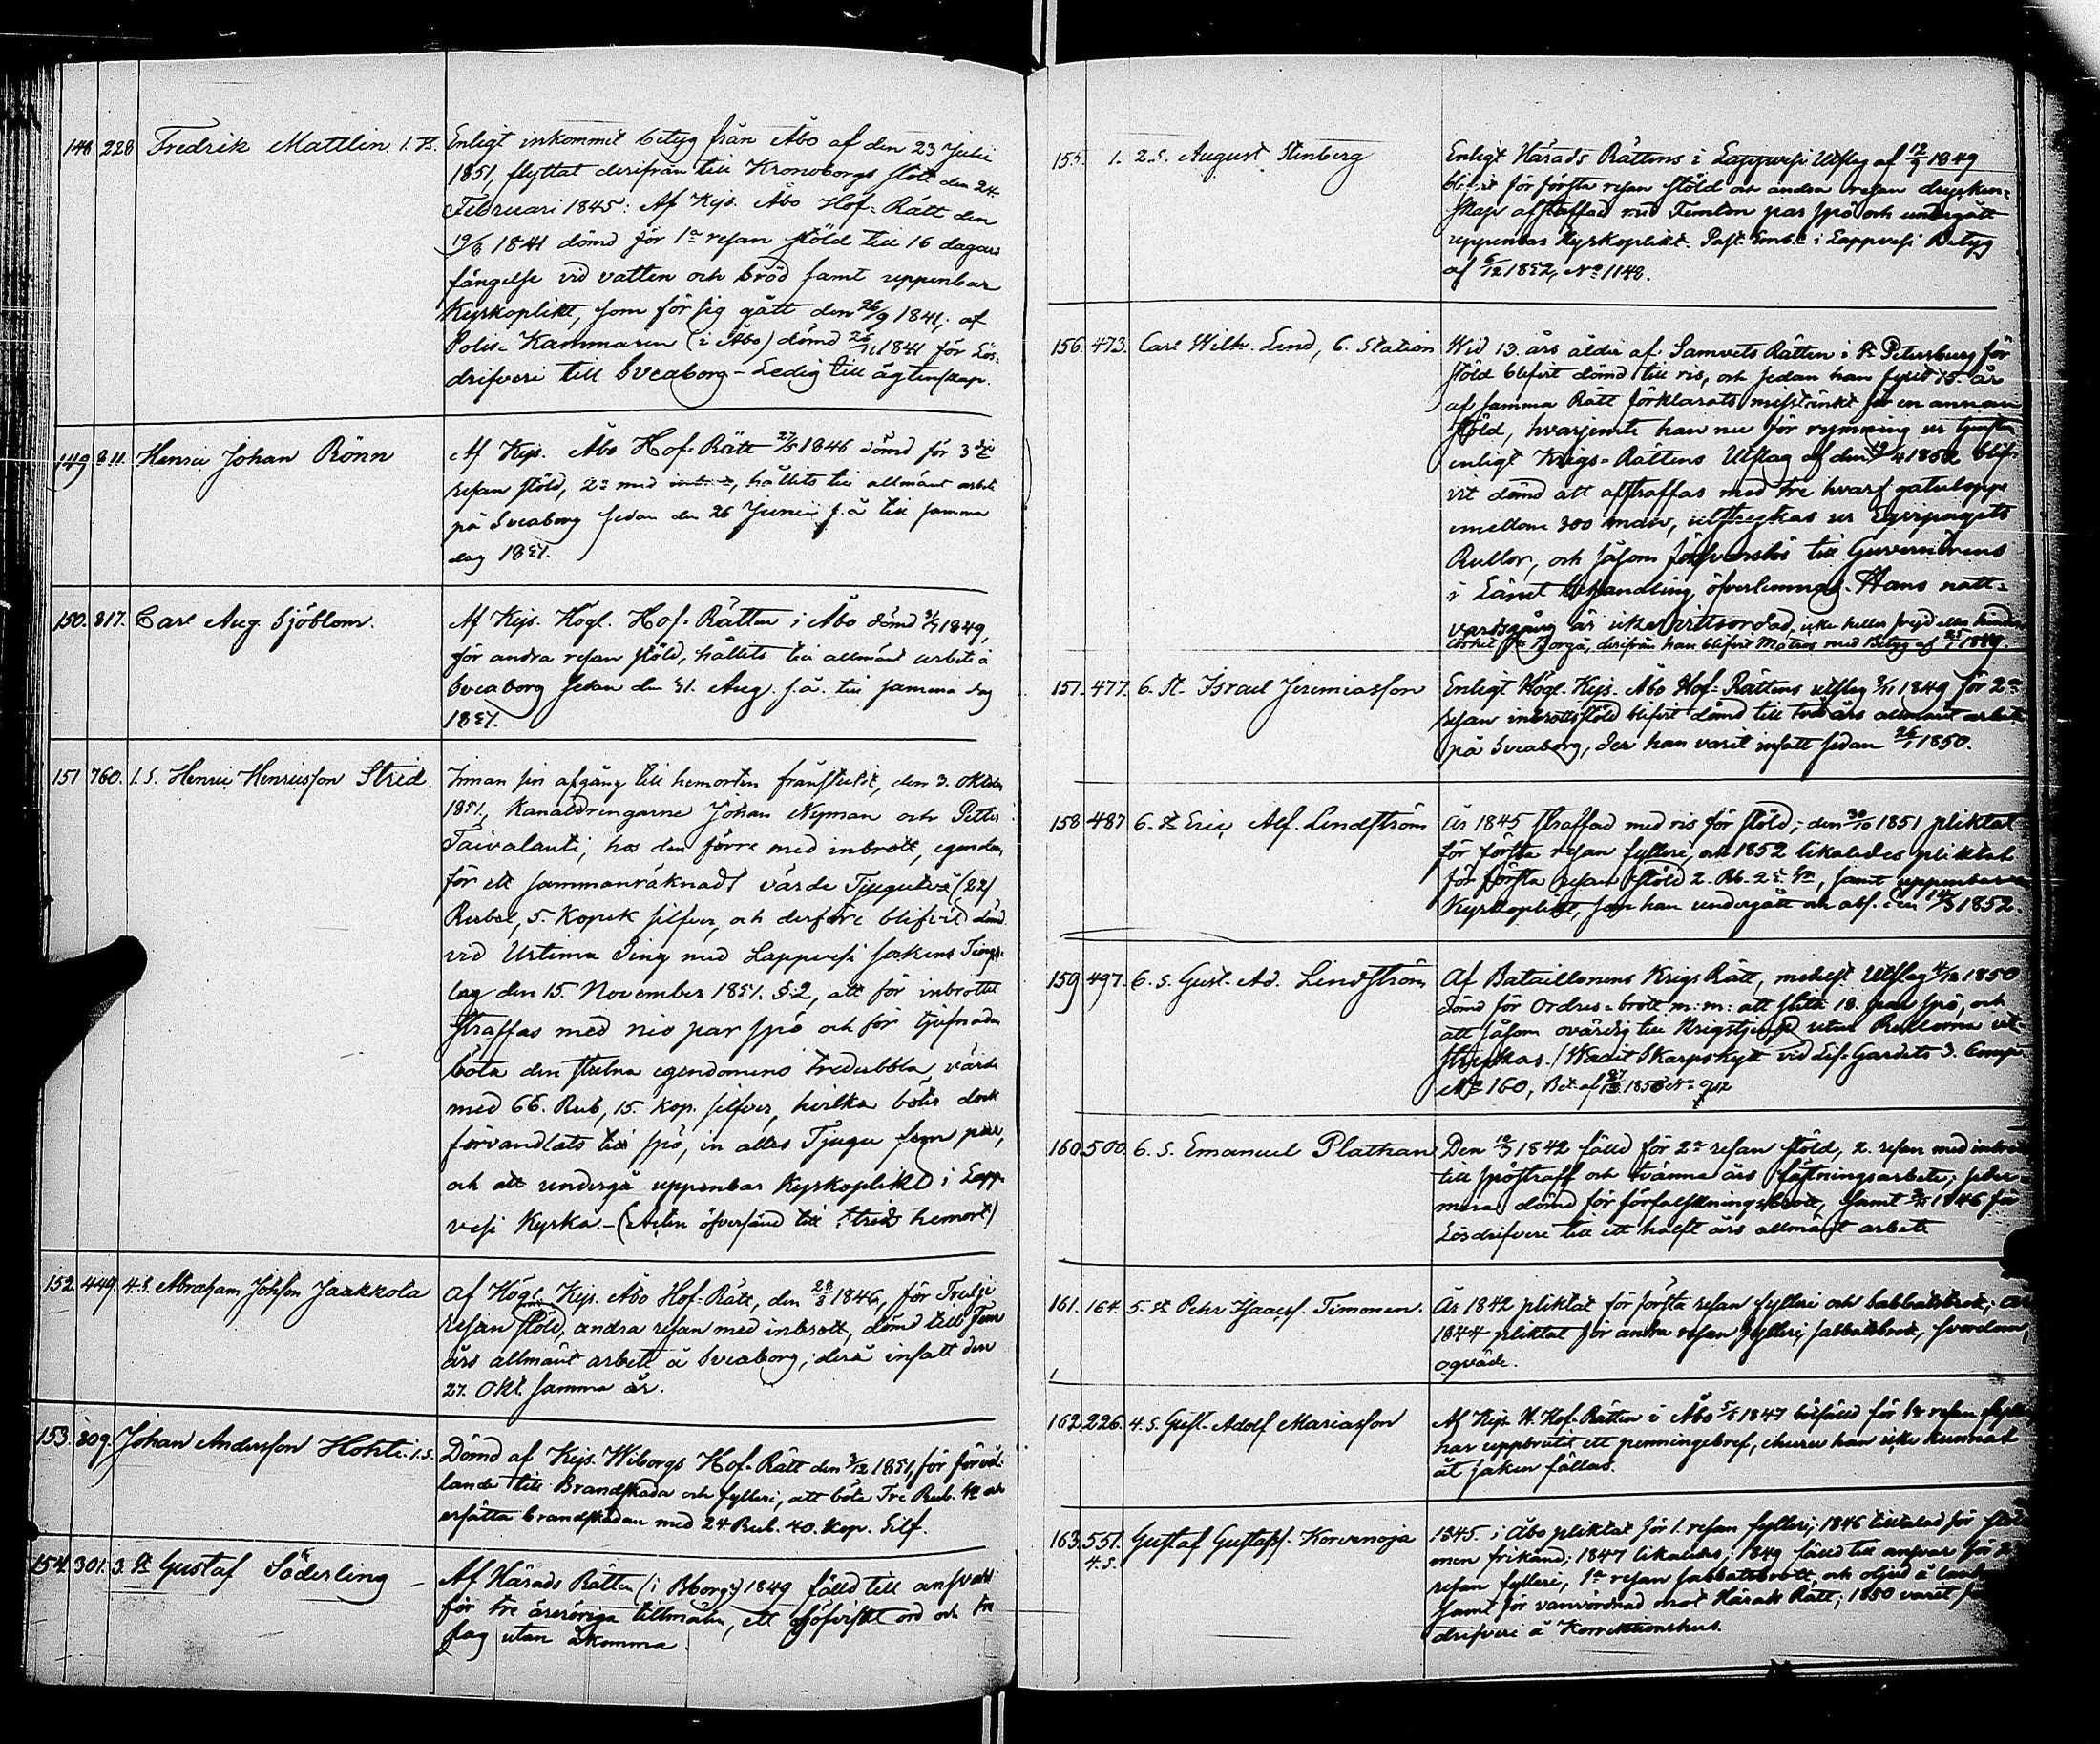 148 228 Fredrik Mattlin. 1. St. Enligt inkommit betyg från Åbo af den 23 Julii
1851, flyttat derifrån till Kronoborgs slott den 24
Februari 1845: Af Kejs. Åbo Hof-Rätt den
19/8 1841 dömd för 1a resan stöld till 16 dagars
fängelse vid vatten och bröd samt uppenbar
Kyrkoplikt, som för sig gått den 26/9 1841; af
Polis-Kammaren (i Åbo) dömd 1841 för Lös-
drifveri till Sveaborg - Ledig till ägtenskap.
149 811. Henric Johan Rönn Af Kejs. Åbo Hof-Rätt 27/5 1846 dömd för 3dje
resan stöld, 2a med inbrott, hållits till allmänt arbete
på Sveaborg sedan den 26 Junii s. å till samma
dag 1851.
150. 817. Carl Aug. Sjöblom. Af Kejs. Högl. Hof-Rätten i Åbo dömd 1849,
för andra resan stöld, hållits till allmänt arbete å
Sveaborg sedan den 31. Aug. s. å. till samma dag
1851.
151 760. 1. S. Henric Henricsson Strid. Innan sin afgång till hemorten frånstulit, den 3. Oktober
1851, Kanaldrengarne Johan Nyman och Petter
Taivalanti, hos den förre med inbrott, egendom
för ett sammanräknadt värde Tjugutvå (22)
Rubel, 5. Kopek silfver, och derföre blifvit dömd
vid Urtima Ting med Lappvesi sockens Tings-
lag den 15. November 1851. § 2, att för inbrottet
straffas med nio par spö och för tjufnaden
böta den stulna egendomens tredubbla värde
med 66. Rub, 15. kop. silfver, hvilka böter dock
förvandlats till spö, in alles Tjugu fem par,
och att undergå uppenbar Kyrkoplikt i Lapp-
vesi Kyrka. - (Akten öfversänd till Strids hemort)
152 449. 4. S. Abraham Johsson Jaakkola Af Högl. Kejs. Åbo Hof-Rätt, den 28/8 1846, för Tredje
resan stöld, andra resan med inbrott, dömd till Fem
års allmänt arbete å Sveaborg; derå insatt den
27. Okt. samma år.
153. 809. Johan Andersson Hohti. 1. S. Dömd af Kejs. Wiborgs Hof-Rätt den 3/12 1851, för förvål-
lande till Brandskada och fylleri, att böta Tre Rub. och
ersätta brandskadan med 24 Rub. 40. Kop. Silf.
154. 301. 3. St Gustaf Söderling Af Härads Rätten 1849 fälld till ansvar
för tre äreröriga tillmälen, ett ord och tre
slag utan åkomma.
155. 1. 2. S. August Stenberg Enligt Härads Rättens i Lappvesi Utslag af 12/9 1849
blifvit för första resan stöld och andra resan drycken-
skap afstraffad med Femton par spö och undergått
uppenbar Kyrkoplikt. Past. Emb. i Lappvesi Betyg
af 6/12 1852, No 1148.
156. 473. Carl Wilh. Lind, 6. Station Wid 13. års ålder af Samvets Rätten i St Petersburg för
stöld blifvit dömd till ris, och sedan han fyllt 15. år
af samma Rätt förklarats misstänkt för en annan
stöld, hvarjemte han nu för rymning ur tjensten
enligt Krigs-Rättens Utslag af den 19/4 1852 blif-
vit dömd att afstraffas med tre hvarf gatulopp
emellan 300 man, utstrykas ur Equipagets
Rullor, och såsom försvarslös till Guvernörens
i Länet behandling öfverlemnas. Hans natt-
vardsgång är icke vitsordad, icke heller frejd eller hinders-
löshet fr. Borgå, derifrån han blifvit Matros med Betyg af 1849.
157. 477. 6. St. Israel Jeremiasson Enligt Högl. Kejs. Åbo Hof-Rättens utslag 1849 för 2a
resan inbrottsstöld blifvit dömd till två års allmänt arbete
på Sveaborg, der han varit insatt sedan 26/1 1850.
158 487 6. St Eric Alf. Lindström År 1845 straffad med ris för stöld; den 30/10 1851 pliktat
för första resan fylleri, och 1852 likaledes pliktat
för första resan stöld 2. Rb. 2 , samt uppenbar
Kyrkoplikt, som han undergått den 14/3 1852.
159 497. 6. S. Gust. Ad. Lindström Af Bataillonens Krigs Rätt, medelst Utslag 4/12 1850
dömd för Ordres-brott m: m: att slita 18. par spö, och
att såsom ovärdig till Krigstjenst utur Rullorna ut-
strykas. (Warit Skarpskytt vid Lif-Gardets 3. Comp:
No 160, Bet. af 1850 No 912
160 500. 6. S. Emanuel Plathan Den 12/3 1842 fälld för 2a resan stöld, 2. resan med inbrott
till spöstraff och tvänne års fästningsarbete, seder-
mera dömd för förfalskningsbrott, samt 1846 för
Lösdrifveri till ett halft års allmänt arbete
161. 164. 5. St Pehr Isacss. Timonen. År 1842 pliktat för första resan fylleri och sabbatsbrott; År
1844 pliktat för andra resan fylleri, sabbatsbrott, svordom,
oqväde.
162 226. 4. S. Gust. Adolf Mariasson Af Kejs. H. Hof-Rätten i Åbo 5/5 1847 för 1a resan
har uppbrutit ett penningebref, ehuru han icke kunnat
åt saken fällas.
163. 551. Gustaf Gustafss. Korvenoja 1845. i Åbo pliktat för 1. resan fylleri; 1846 tilltalad för
4. S. men frikänd; 1847 likaledes; 1849 fälld till ansvar för 2
resan fylleri, 1a resan sabbatsbrott och oljud å
samt för vanvördnad mot Härads Rätt; 1850 varit för
drifveri å Korrektionshus.